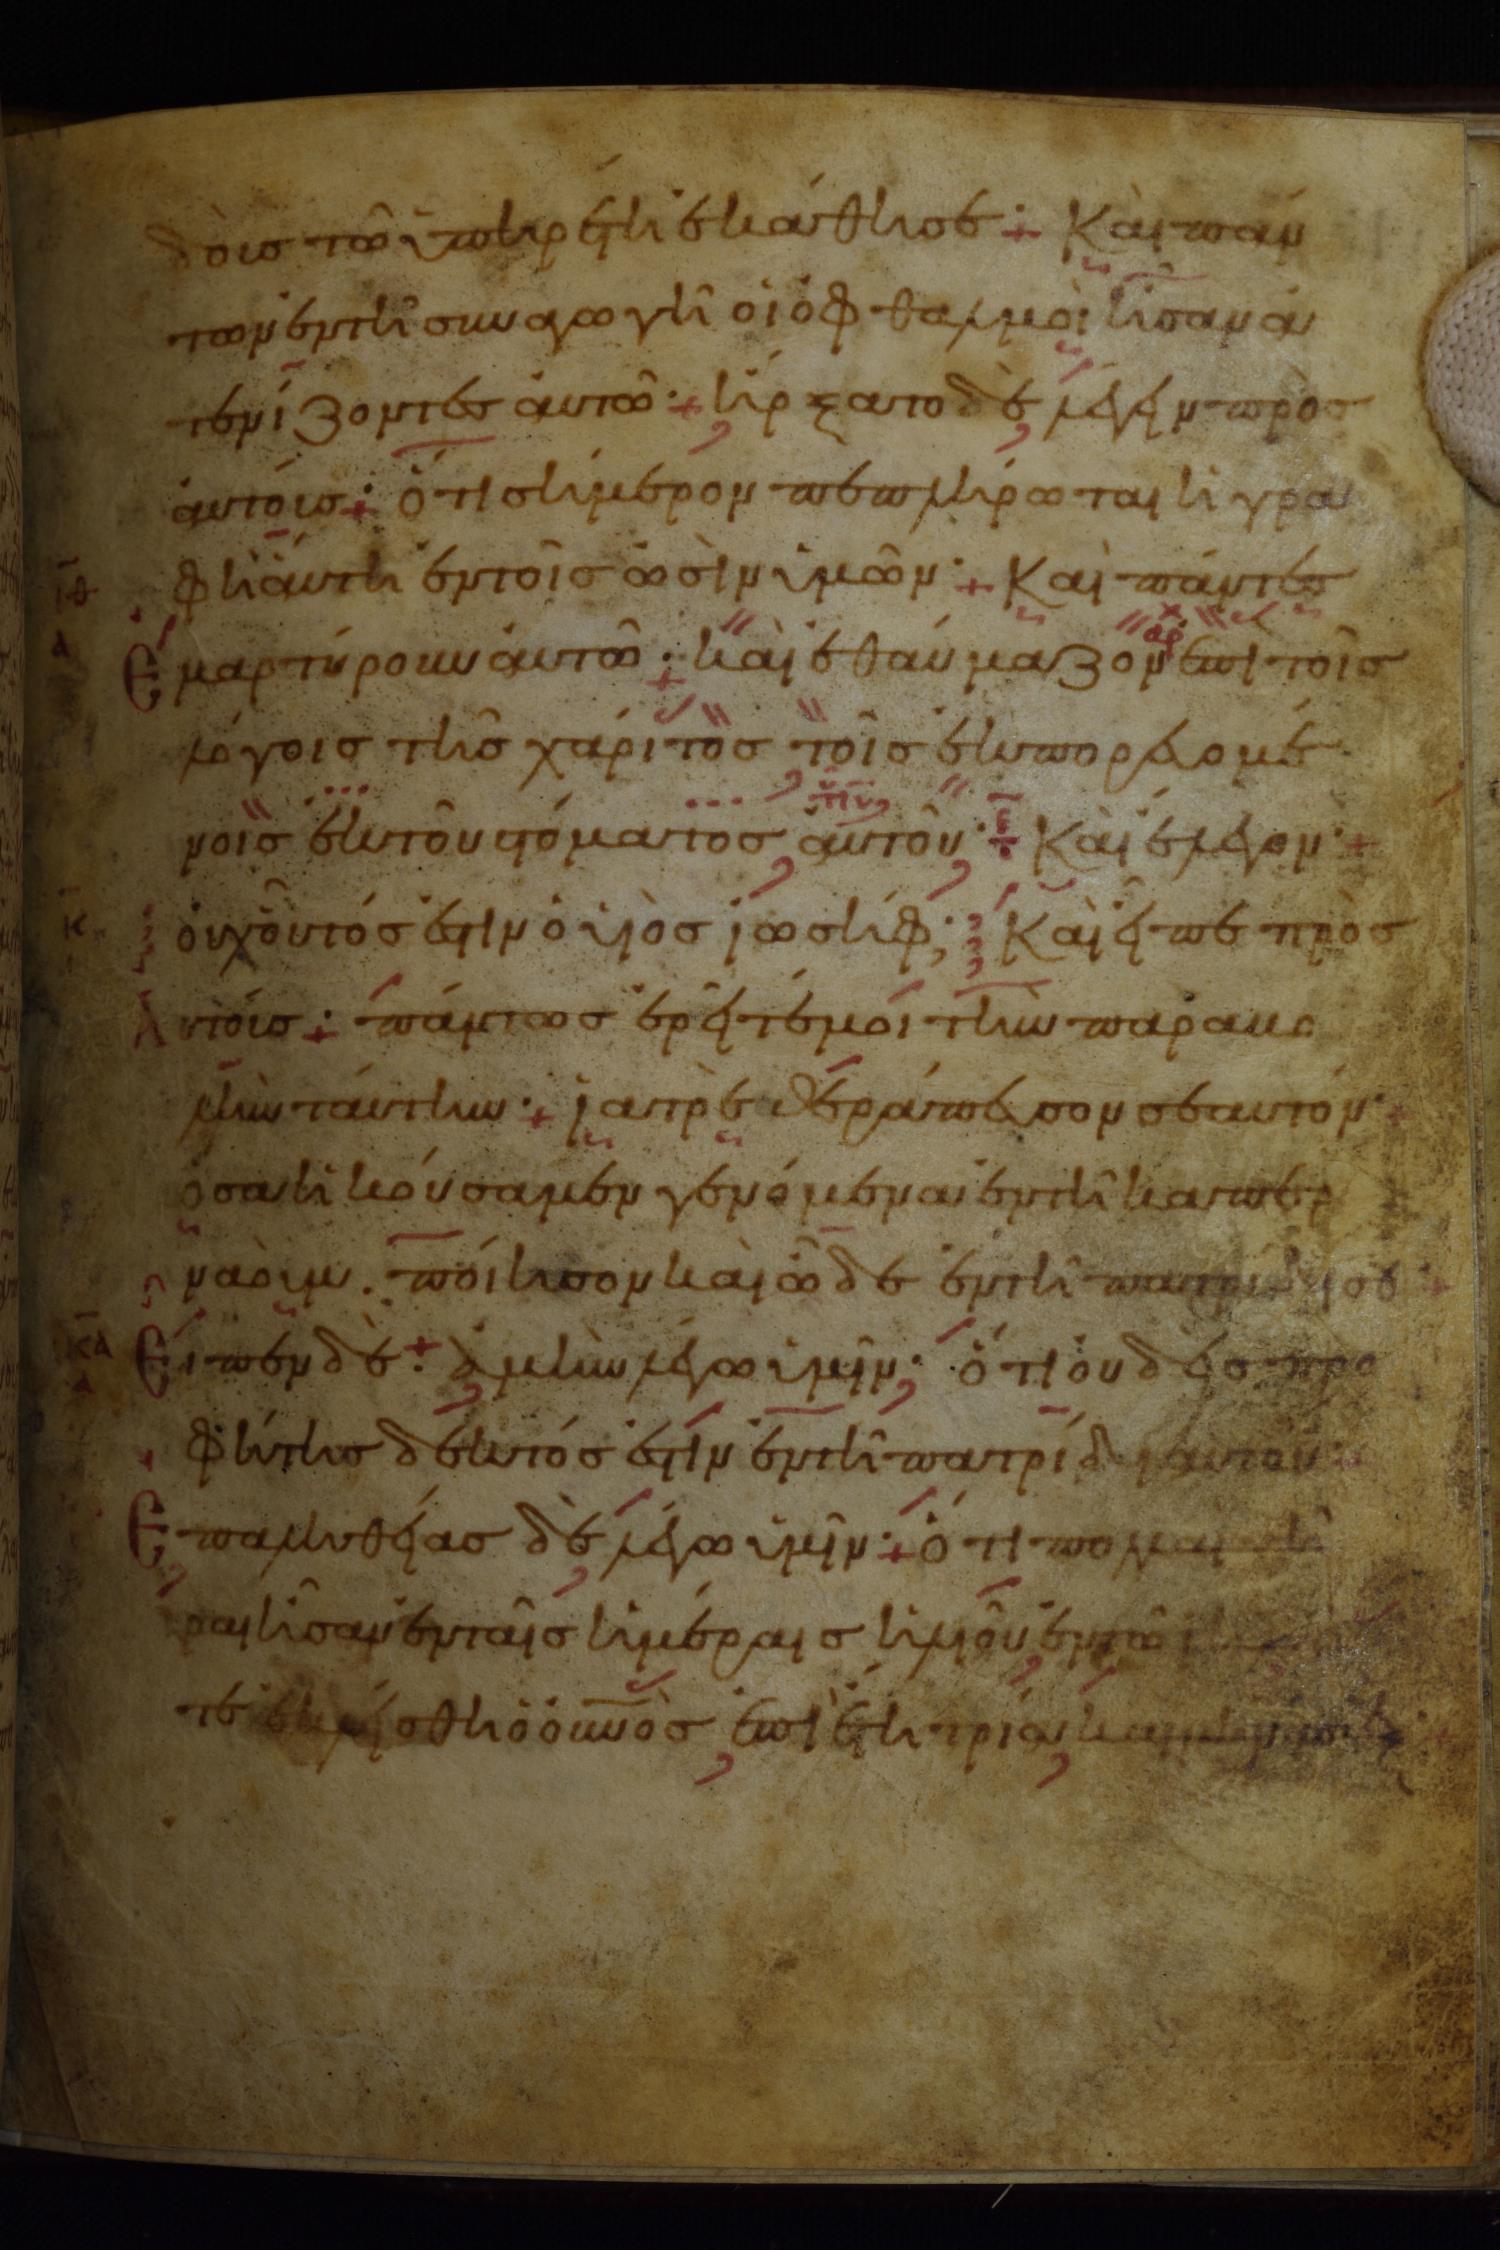 δοὺς τῶ ὑπηρέτη ἐκάθησε· Καὶ πάν
των ἐν τῆ συναγωγῆ οἱ ὀφθαλμοὶ ἦσαν ἀ
τενίζοντες αὐτῶ· ἤρξατο δὲ λέγειν πρὸς
αὐτούς· ὅτι σήμερον πεπλήρωται ἡ γρα
ΙΘ φὴ ἅυτη ἐν τοῖς ὠσὶν ὑμῶν· Καὶ πάντες
Α Ἐμαρτύρουν αὐτῶ· καὶ ἐθαύμαζον ἐπὶ τοῖς
αρ
λόγοις τῆς χάριτος τοῖς ἐκπορευομέ
νοις ἐκ τοῦ στόματος αὐτοῦ· Καὶ ἔλεγον·
Κ οὐχ οὗτός ἐστιν ὁ υἱὸς ἰωσήφ; Καὶ εἶπε πρὸς
Αὐτούς· πάντως ἐρεῖτέ μοι τὴν παραβο
λὴν ταύτην· ἰατρὲ θεράπευσον σεαυτόν·
ὅσα ἠκούσαμεν γενόμενα ἐν τῆ καπερ
ναούμ. ποίησον καὶ ὧδε ἐν τῆ πατρίδι σου
ΚΑ Εἶπεν δέ· ἀμὴν λέγω ὑμῖν· ὅτι οὐδεὶς προ
φήτης δεκτός ἐστιν ἐν τῆ πατρίδι αὐτοῦ·
Ἐπ ἀληθείας δὲ λέγω ὑμῖν· ὅτι πολλαὶ χῆ
ραι ἦσαν ἐν ταῖς ἡμέραις ἠλιοῦ ἐν τῶ
τε ἐκλείσθη ὁ οὐνος ἐπὶ ἔτη τρία καὶ μῆνας